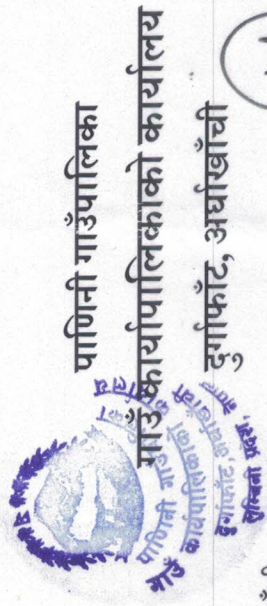 पाणिनी गाउँपालिका
गाउँ कार्यापालिकाको कार्यालय
दुर्गाफाँट, अर्घाखाँची
पाणिनी गाउँपालिका
गाउँ कार्यपालिकाको कार्यालय
दुर्गाफाँट, अर्घाखाँची
लुम्बिनी प्रदेश, नेपाल